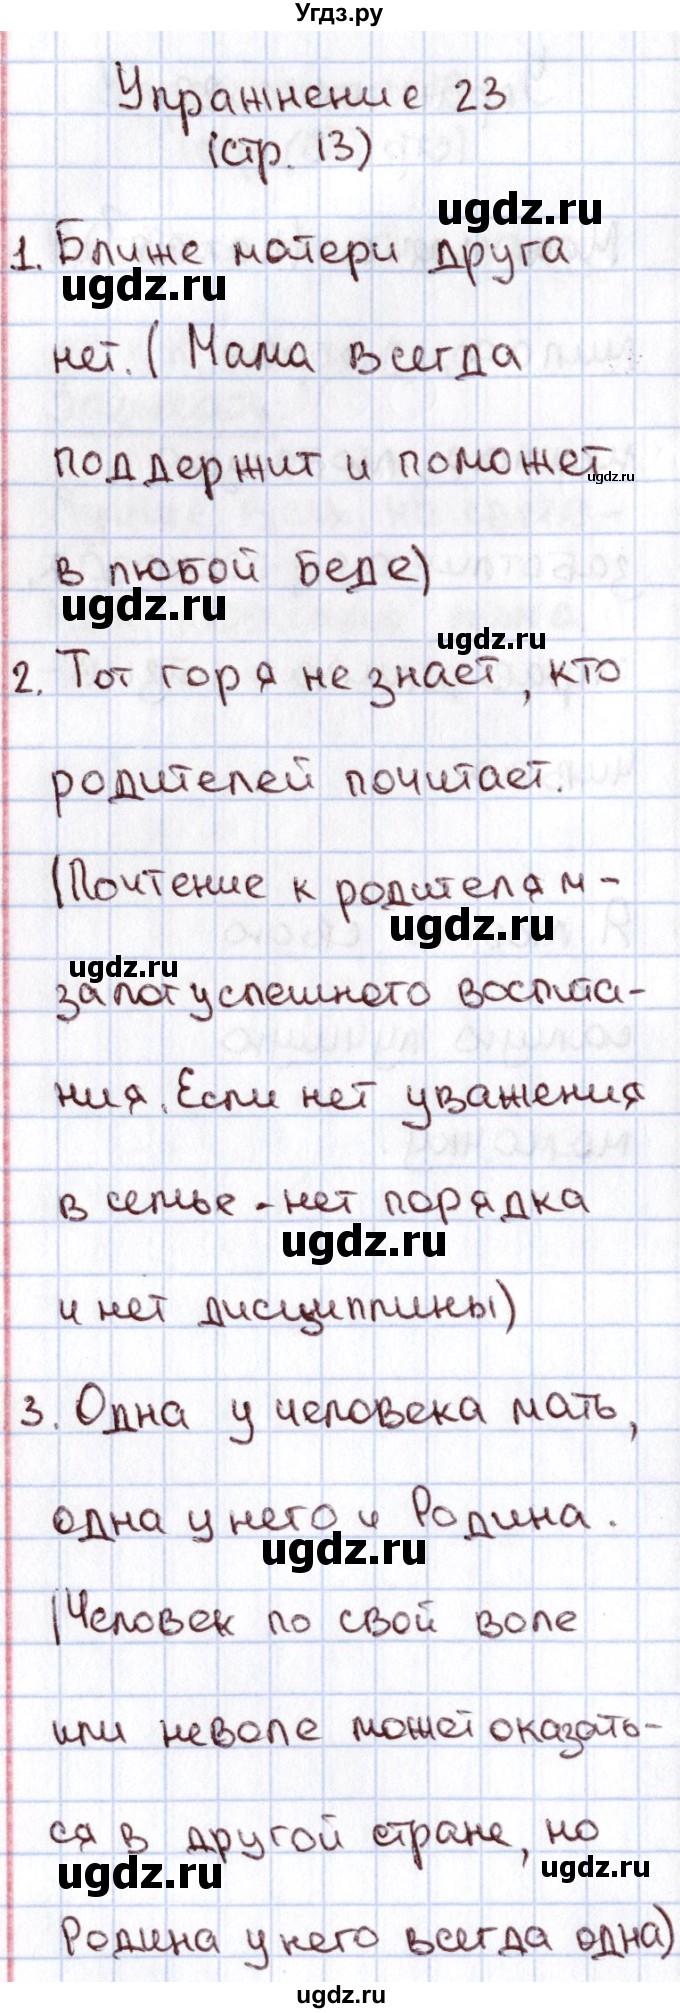 Угдз.ру
Упражнение 23
(стр. 13)
ugdz.ru
1. Ближе матери друга
ugdz.ru
нет. (Мама всегда
поддержит и поможет
ugdz.ru
в любой беде)
ugdz.ru
ugdz.ru
2. Тот горя не знает, кто
родителей почитает.
(Почтение к родителям -
ugdz.ru
ugdz.ru
залог успешного воспита-
ния. Если нет уважения
в семье - нет порядка
ugdz.ru
и нет дисциплины)
3. Одна у человека мать,
одна у него и Родина.
ugdz.ru
(Человек по свой воле
или неволе может оказать-
ся в другой стране, но
ugdz.ru
ugdz.ru
Родина у него всегда одна)
ugdz.ru